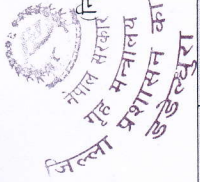 नेपाल सरकार
गृह मन्त्रालय
जिल्ला प्रशासन का
डडेल्धुरा